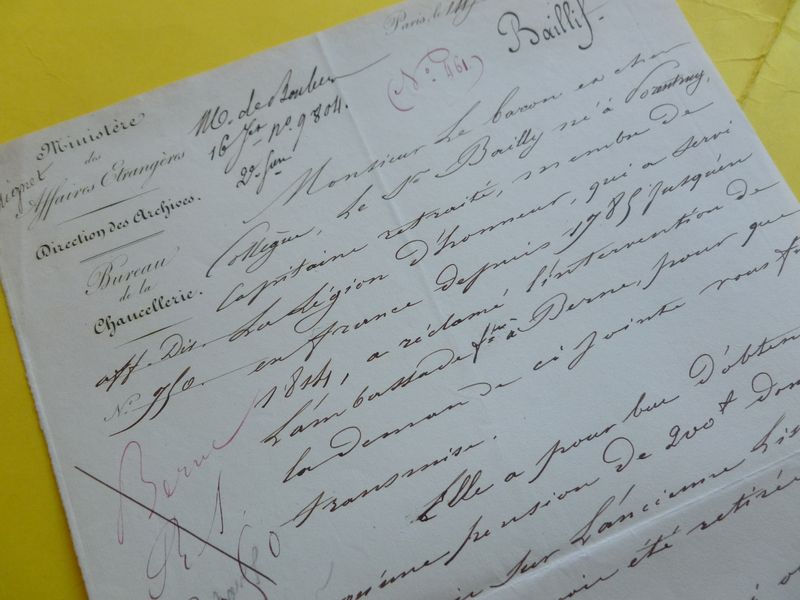 Paris, le
Baillif.
(N° 461)
M. de
16 Jer no. 9804.
Ministère
des
Affaires Etrangères
Direction des Archives.
Bureau
de la
Chancellerie.
aff. Div.
N° 750.
Berne
Monsieur Le baron et cher
Collègue, Le Sr. Bailly né à Porentruy,
Capitaine retraité, membre de
La Légion d'honneur, qui a servi
en france depuis 1785 jusqu'en
1814, a réclamé l'intervention de
L'ambassade fse à Berne, pour que
la demande ci jointe vous fut
transmise.
Elle a pour but d'obten
d'une pension de 200f don
sur L'ancienne Lis
été retirée